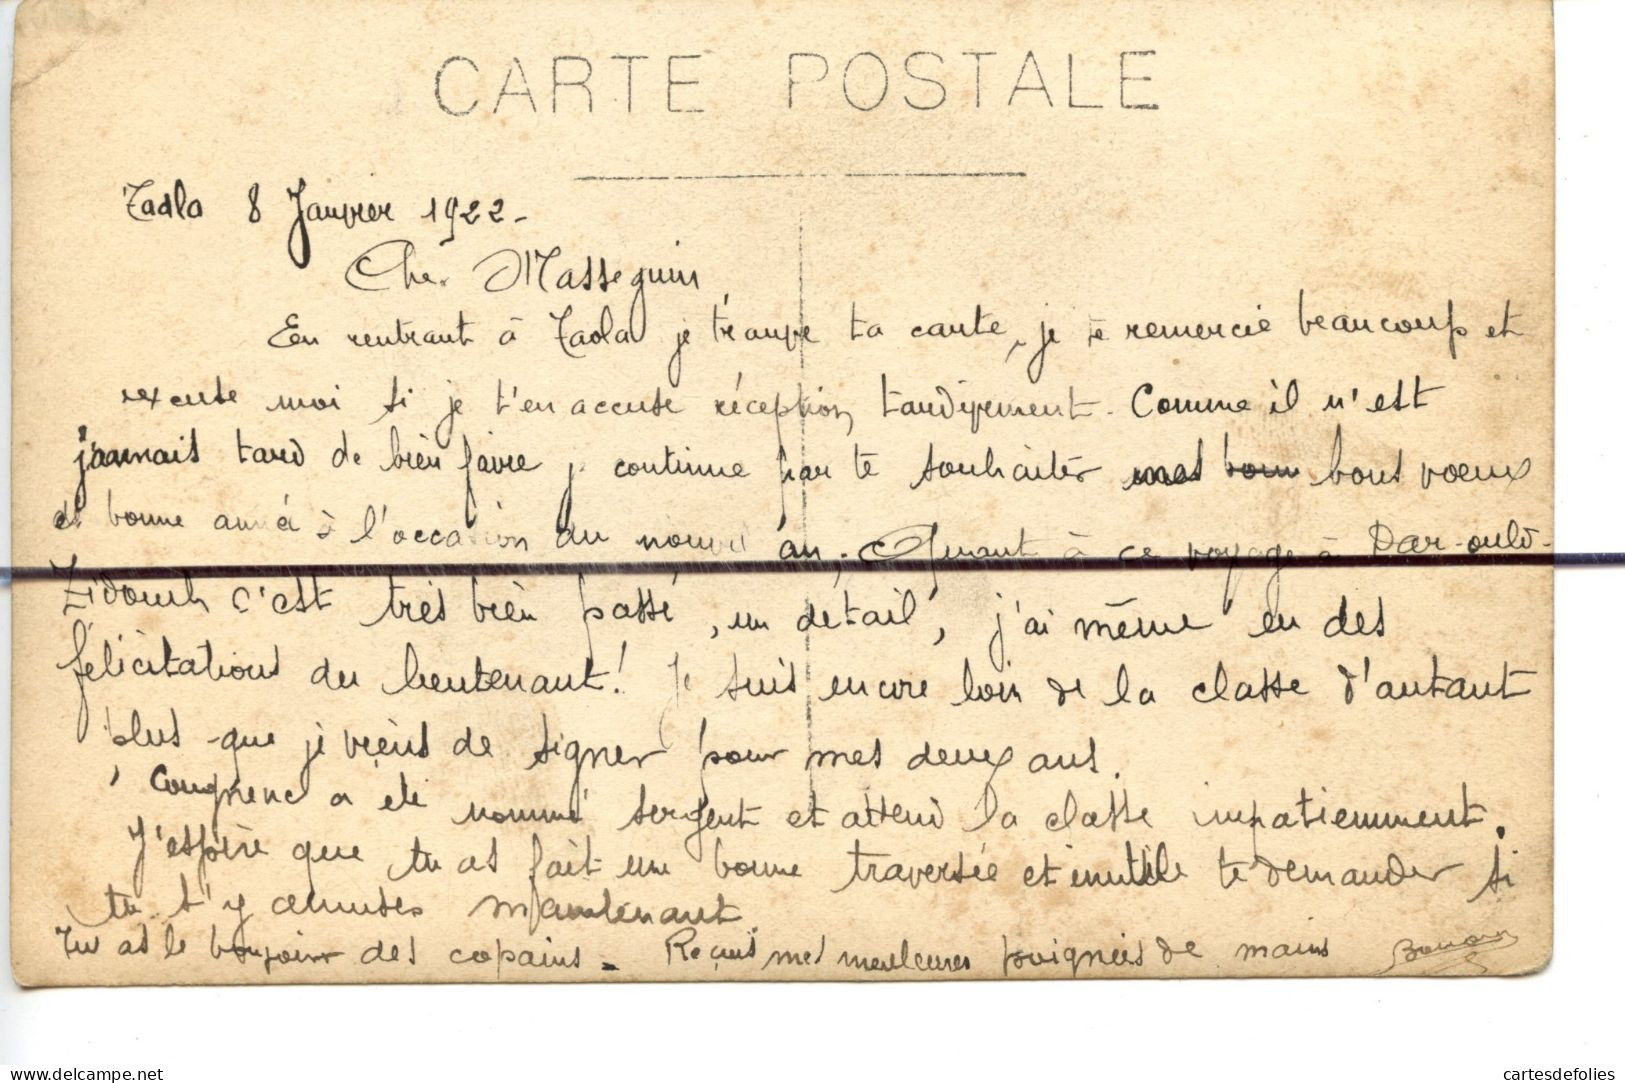 CARTE POSTALE
Tadla 8 Janvier 1922-
Cher Masseguin
En rentrant à Tadla je trouve ta carte, je te remercie beaucoup et
excuse moi si je t'en accuse réception tardivement. Comme il n'est
jaamais tard de bien faire je continue par te souhaiter mes bons bons voeux
de bonne année à l'occasion du nouvel an. Quant à ce voyage à Dar-ould-
Zidouh c'est très bien passé, un détail, j'ai même eu des
félicitations du lieutenant! Je suis encore loin de la classe d'autant
plus que je viens de signer pour mes deux ans.
a été nommé sergent et attend la classe impatiemment.
J'espère que tu as fait une bonne traversée et inutile te demander si
tu t'y amuses maintenant.
Tu as le bonjoir des copains. Reçois mes meilleures poignées de mains
www.delcampe.net
cartesdefolies